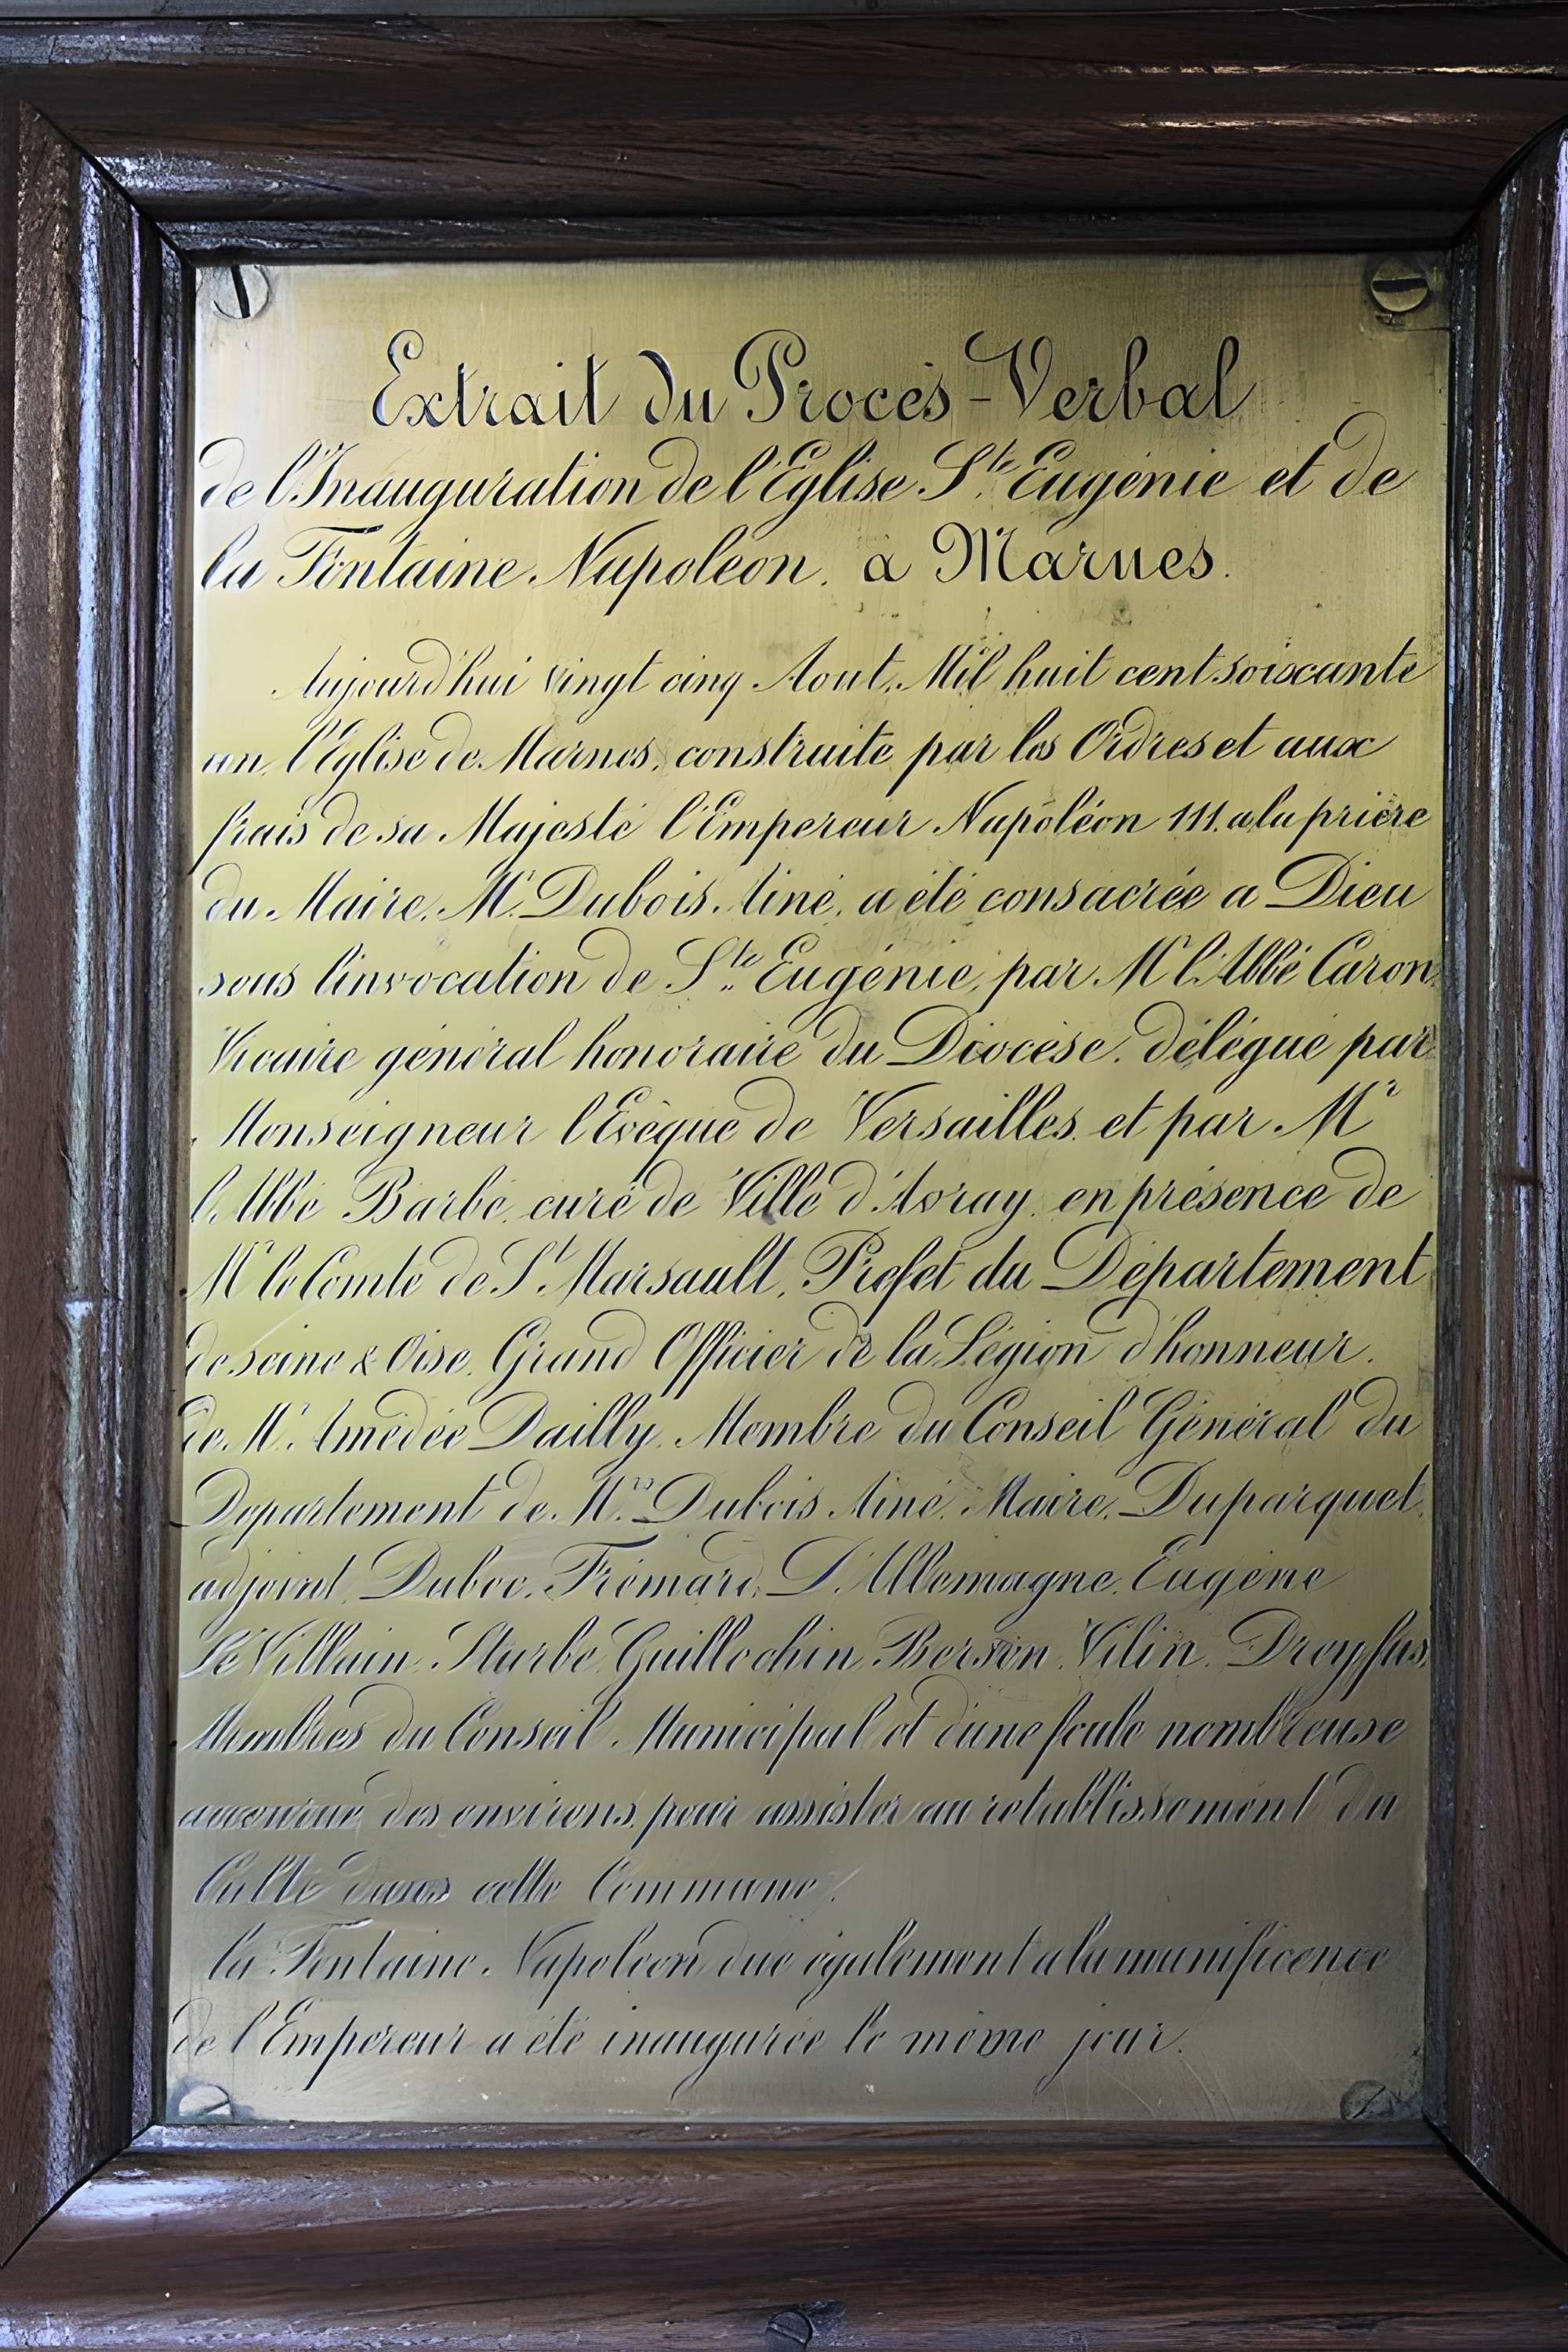 Extrait du Procès-Verbal
de l'Inauguration de l'Eglise Ste Eugénie et de
la Fontaine Napoléon. à Marnes.
Aujourd'hui vingt cinq Aout, Mil huit cent soixante
un, l'Eglise de Marnes, construite par les Ordres et aux
frais de sa Majesté l'Empereur Napoléon III. a la prière
du Maire, Mr. Dubois Ainé, a été consacrée a Dieu
sous l'invocation de Ste Eugénie, par Mr l'Abbé Caron
Vicaire général honoraire du Diocèse, délégué par
Monseigneur l'Evêque de Versailles, et par Mr
l'Abbé Barbé, curé de Ville d'Avray, en présence de
Mr le Comte de St Marsault, Préfet du Département
de seine & Oise, Grand Officier de la Légion d'honneur.
de Mr. Amédée Dailly, Membre du Conseil Général du
Département de Mrs Dubois Ainé, Maire, Duparquet,
adjoint, Duboc, Frémard, D'Allemagne, Eugène
Le Villain, Sturbe, Guillochin, Berson, Vilin, Dreyfus,
Membres du Conseil Municipal et d'une foule nombreuse
accourue des environs, pour assister au rétablissement du
Culte dans cette Commune.
la Fontaine Napoléon due également a la munificence
de l'Empereur a été inaugurée le même jour.